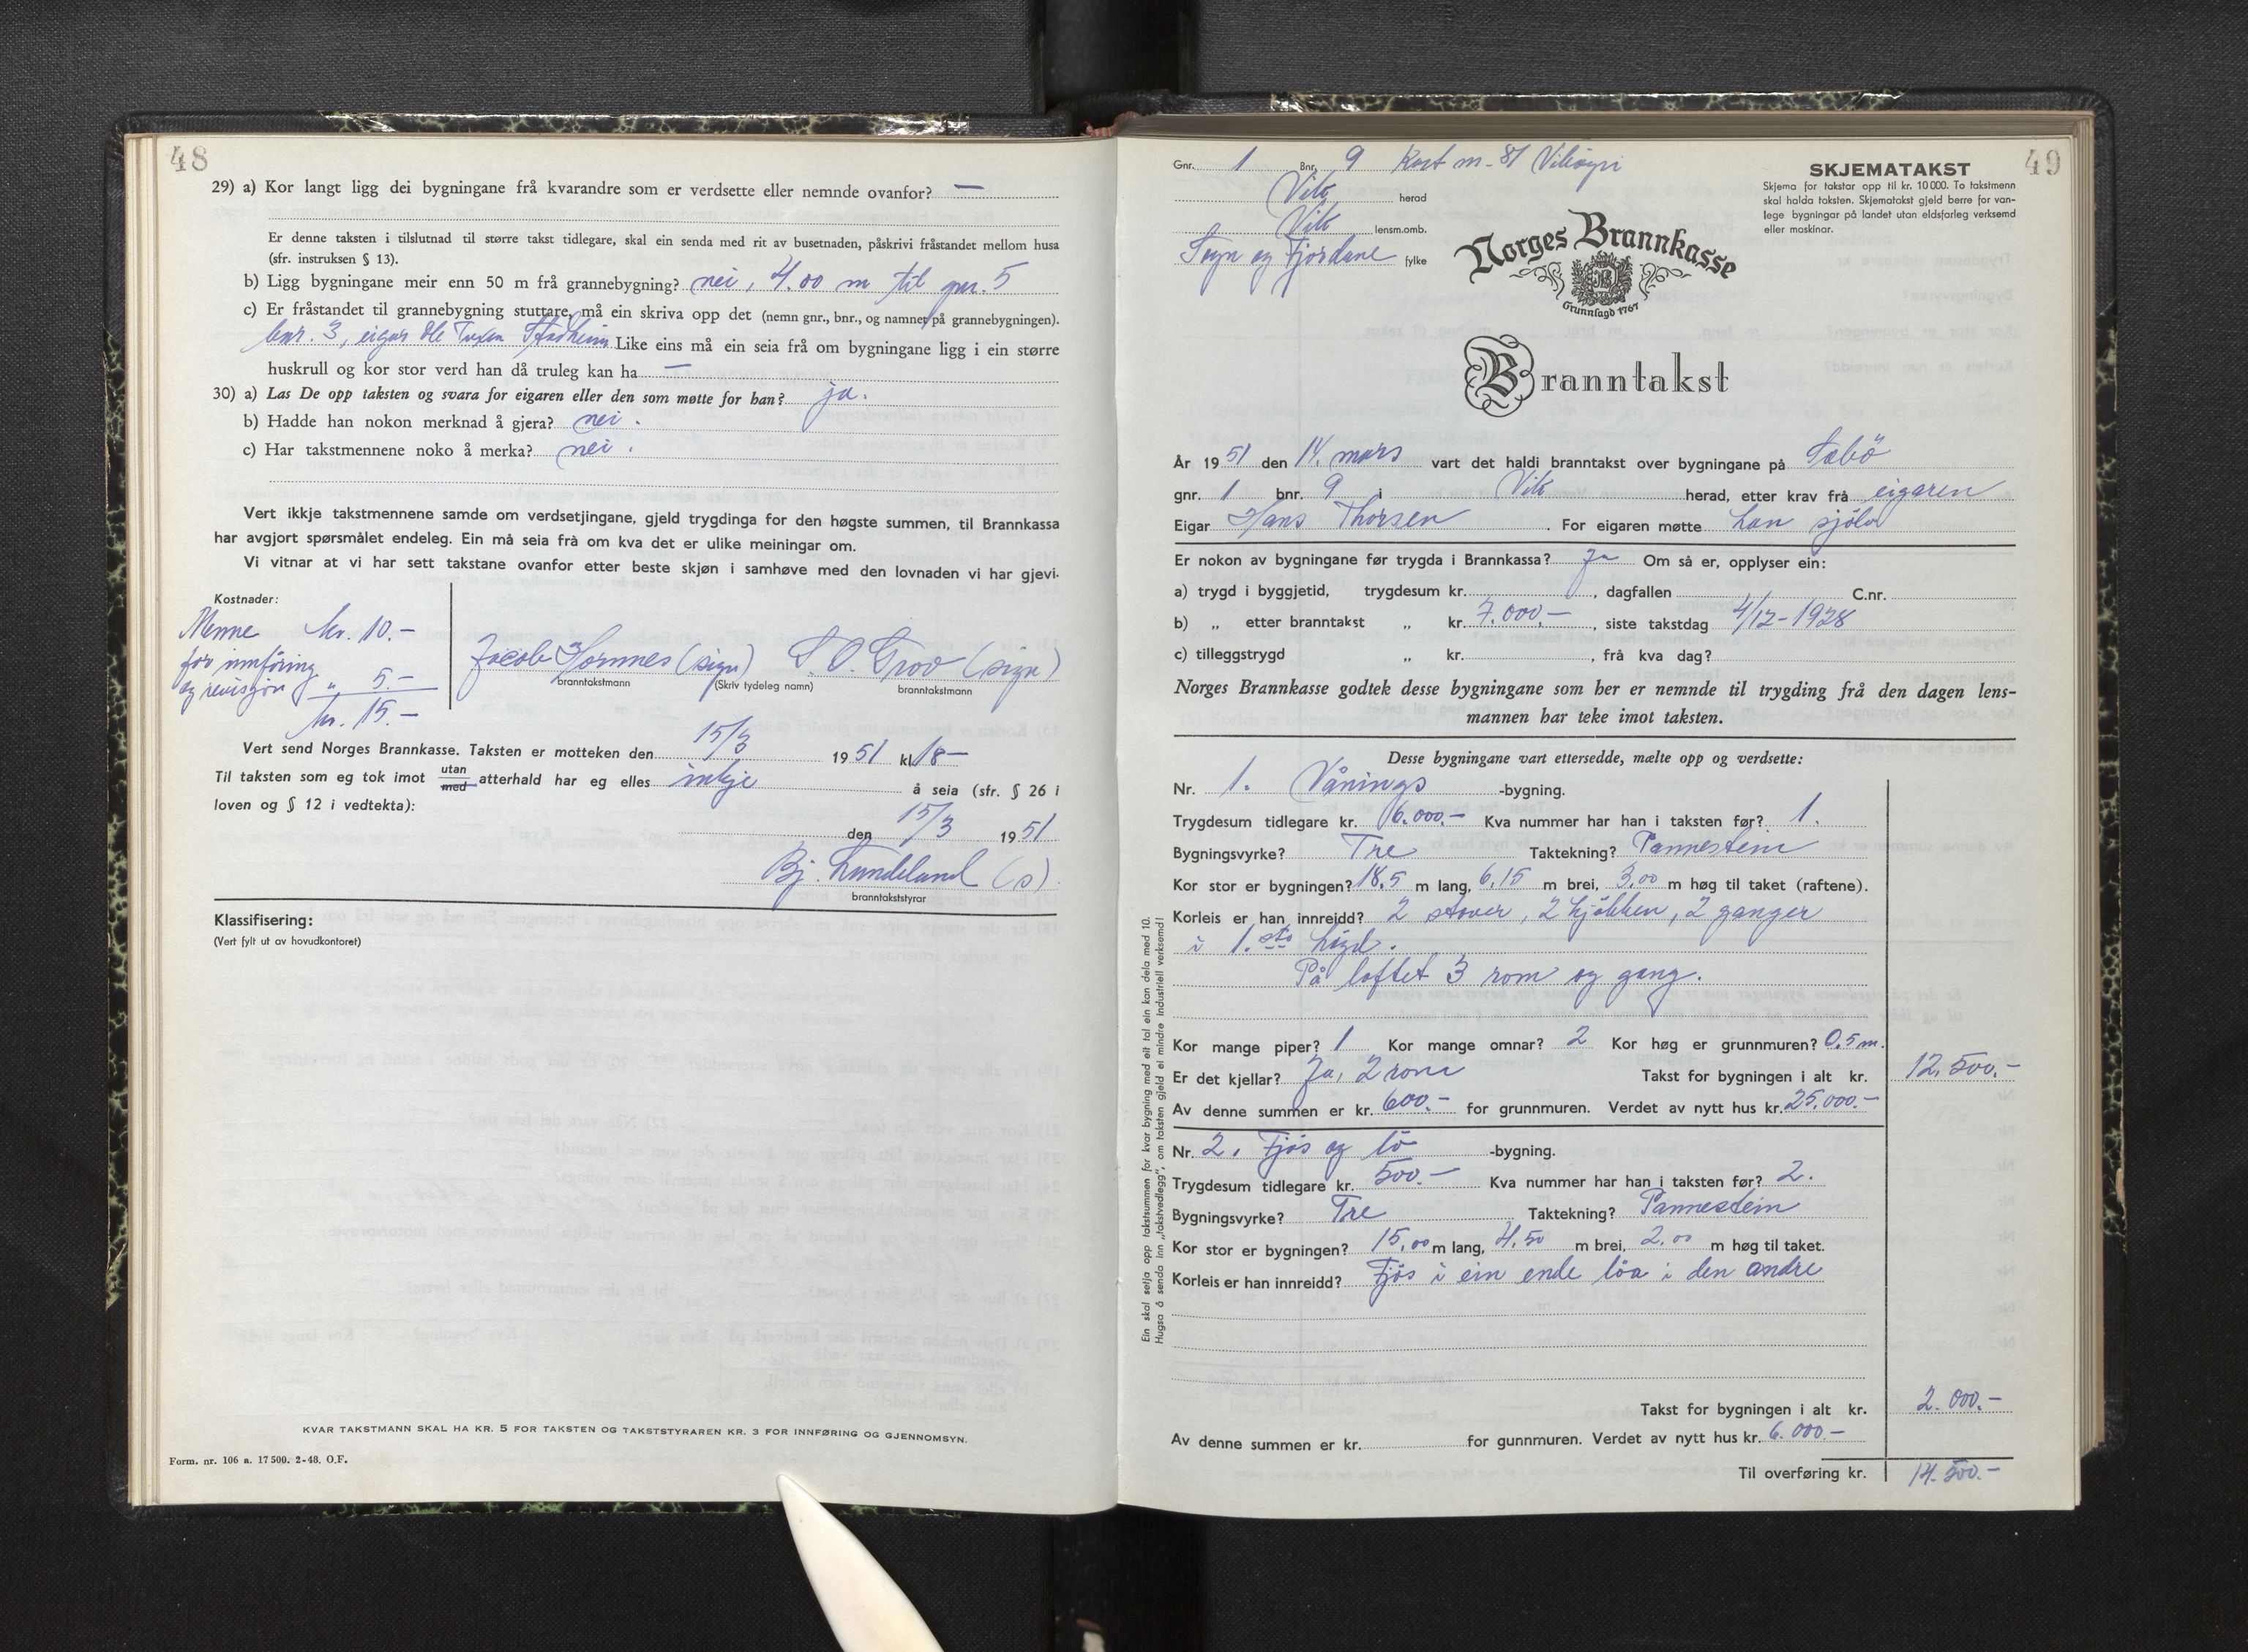 48
29) a) Kor langt ligg dei bygningane frå kvarandre som er verdsette eller nemnde ovanfor? —
Er denne taksten i tilslutnad til større takst tidlegare, skal ein senda med rit av busetnaden, påskrivi fråstandet mellom husa
(sfr. instruksen § 13).
b) Ligg bygningane meir enn 50 m frå grannebygning? nei, 4.00 m til gnr. 5
c) Er fråstandet til grannebygning stuttare, må ein skriva opp det (nemn gnr., bnr., og namnet på grannebygningen).
bnr. 3, eigar Ole Tuxen Stadheim Like eins må ein seia frå om bygningane ligg i ein større
huskrull og kor stor verd han då truleg kan ha —
30) a) Las De opp taksten og svara for eigaren eller den som møtte for han? ja.
b) Hadde han nokon merknad å gjera? nei.
c) Har takstmennene noko å merka? nei.
Vert ikkje takstmennene samde om verdsetjingane, gjeld trygdinga for den høgste summen, til Brannkassa
har avgjort spørsmålet endeleg. Ein må seia frå om kva det er ulike meiningar om.
Vi vitnar at vi har sett takstane ovanfor etter beste skjøn i samhøve med den lovnaden vi har gjevi.
Kostnader:
Menne kr. 10.-
for innföring
og revisjon " 5.-
kr. 15.-
Jacob Hornnes (sign) S. O. Trov (sign)
branntakstmann (Skriv tydeleg namn) branntakstmann
Vert send Norges Brannkasse. Taksten er motteken den 15/3 1951 kl. 18-
Til taksten som eg tok imot utan/med atterhald har eg elles inkje å seia (sfr. § 26 i
loven og § 12 i vedtekta):
den 15/3 1951
Bj. Lundeland (s)
branntakststyrar
Klassifisering:
(Vert fylt ut av hovudkontoret)
KVAR TAKSTMANN SKAL HA KR. 5 FOR TAKSTEN OG TAKSTSTYRAREN KR. 3 FOR INNFØRING OG GJENNOMSYN.
Form. nr. 106 a. 17 500. 2-48. O.F.
49
Gnr. 1 Bnr. 9 Kort m - 81 Viksøyri
Vik herad
Vik lensm.omb.
Sogn og Fjordane fylke
SKJEMATAKST
Skjema for takstar opp til kr. 10 000. To takstmenn
skal halda taksten. Skjematakst gjeld berre for van-
lege bygningar på landet utan eldsfarleg verksemd
eller maskinar.
Norges Brannkasse
Grunnlagd 1767
Branntakst
År 1951 den 14. mars vart det haldi branntakst over bygningane på Sæbö
gnr. 1 bnr. 9 i Vik herad, etter krav frå eigaren
Eigar Hans Thorsen. For eigaren møtte han sjölv
Er nokon av bygningane før trygda i Brannkassa? Ja Om så er, opplyser ein:
a) trygd i byggjetid, trygdesum kr. , dagfallen C.nr.
b) „ etter branntakst „ kr. 7.000.- , siste takstdag 4/12-1928
c) tilleggstrygd „ kr. , frå kva dag?
Norges Brannkasse godtek desse bygningane som her er nemnde til trygding frå den dagen lens-
mannen har teke imot taksten.
Desse bygningane vart ettersedde, mælte opp og verdsette:
Nr. 1. Vånings -bygning.
Trygdesum tidlegare kr. 6.000.- Kva nummer har han i taksten før? 1.
Bygningsvyrke? Tre Taktekning? Pannestein
Kor stor er bygningen? 18.5 m lang, 6,15 m brei, 3,00 m høg til taket (raftene).
Korleis er han innreidd? 2 stover, 2 kjökken, 2 ganger
i 1.ste högd.
På loftet 3 rom og gang.
Kor mange piper? 1 Kor mange omnar? 2 Kor høg er grunnmuren? 0.5 m.
Er det kjellar? Ja, 2 rom Takst for bygningen i alt kr. 12.500.-
Av denne summen er kr. 600.- for grunnmuren. Verdet av nytt hus kr. 25.000.-
Nr. 2. Fjös og lö -bygning.
Trygdesum tidlegare kr. 500.- Kva nummer har han i taksten før? 2.
Bygningsvyrke? Tre Taktekning? Pannestein
Kor stor er bygningen? 15,00 m lang, 4,50 m brei, 2,00 m høg til taket.
Korleis er han innreidd? Fjös i ein ende löa i den andre
Takst for bygningen i alt kr. 2.000.-
Av denne summen er kr. for gunnmuren. Verdet av nytt hus kr. 6.000.-
Til overføring kr. 14.500.-
Ein skal setja opp takstsummen for kvar bygning med eit tal ein kan dela med 10.
Hugsa å senda inn „takstvedlegg", om taksten gjeld ei mindre industriell verksemd!